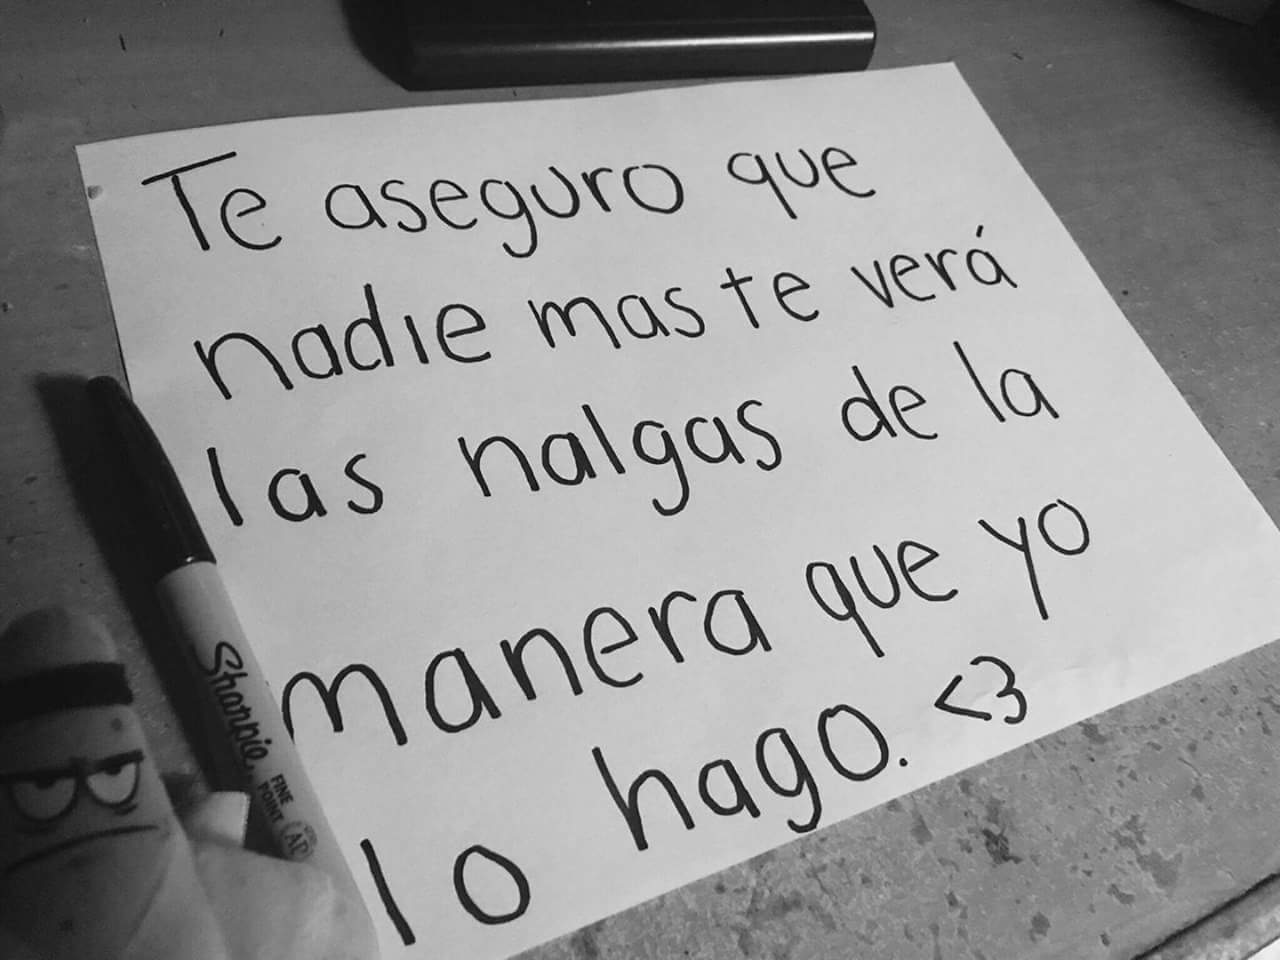 Te aseguro que
nadie mas te verá
las nalgas de la
manera que yo
lo hago. <3
Sharpie
FINE
POINT